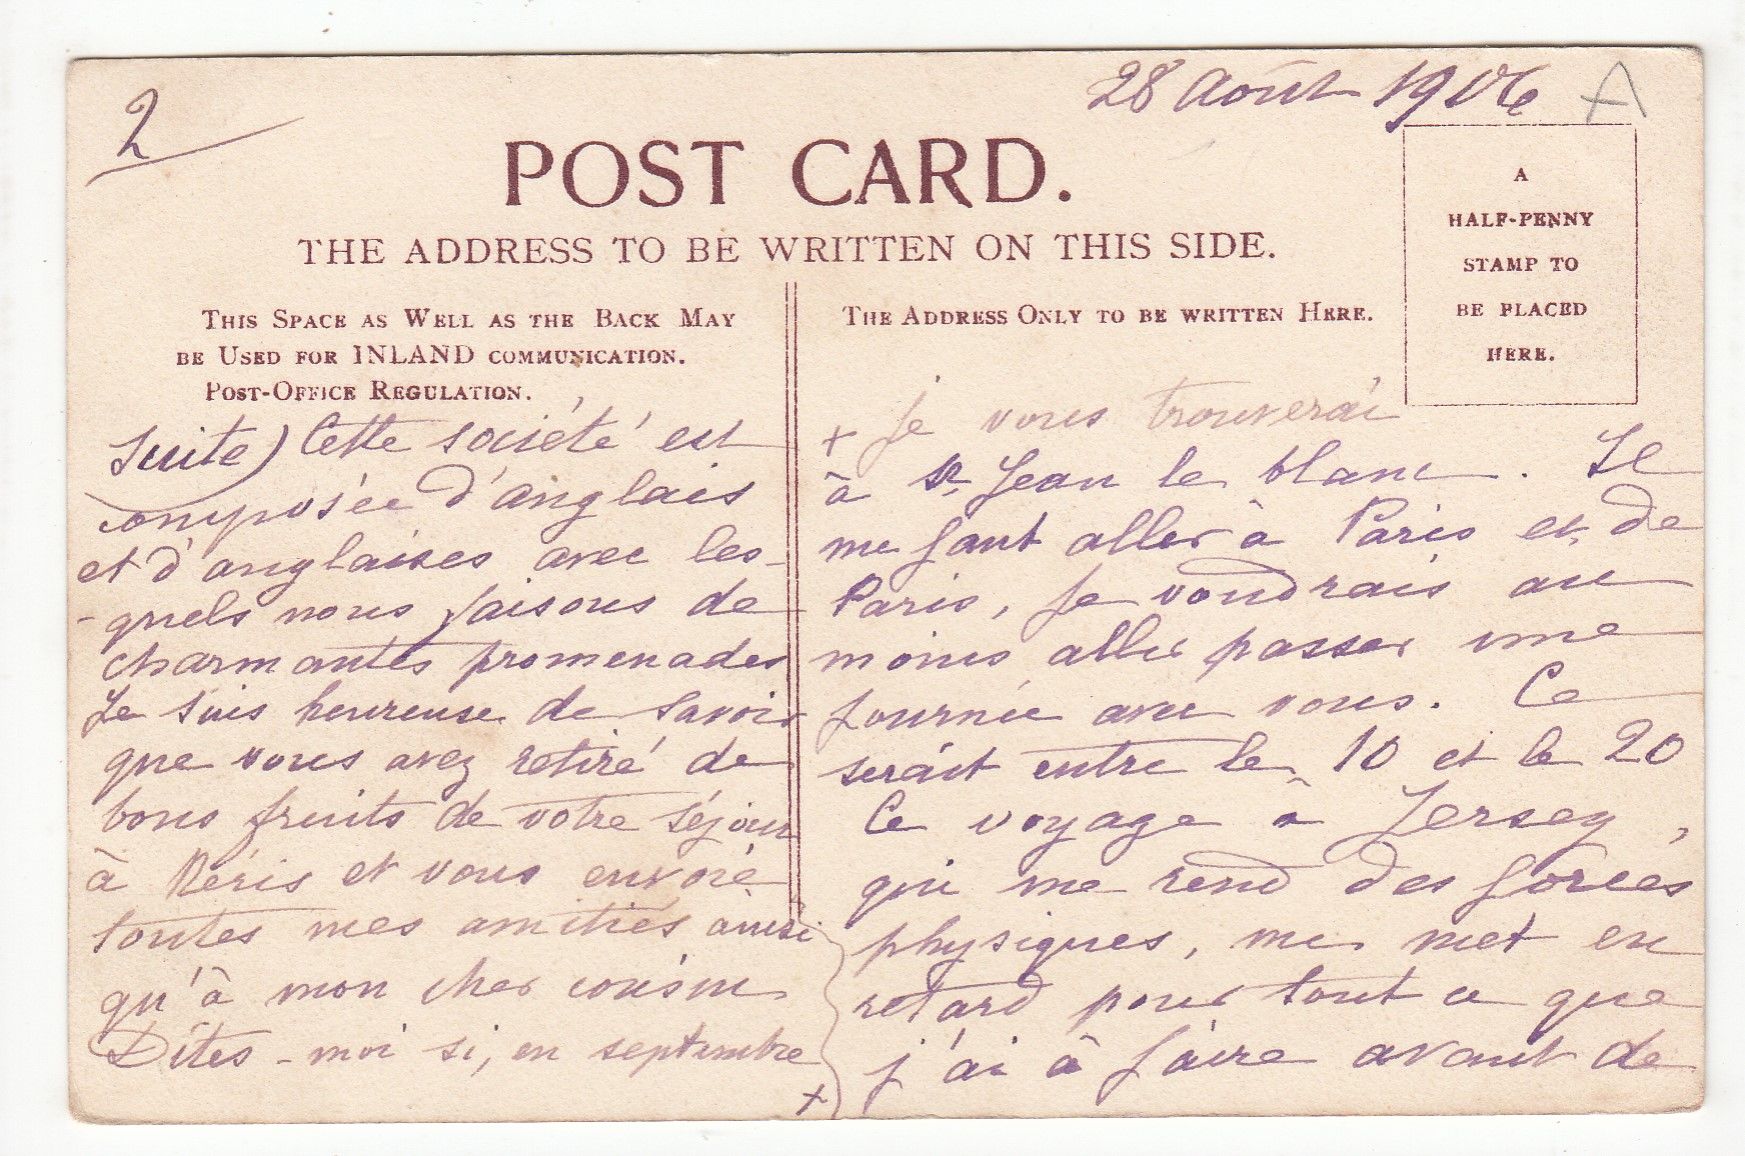 28 Août 1906 A
2
POST CARD.
THE ADDRESS TO BE WRITTEN ON THIS SIDE.
A
HALF-PENNY
STAMP TO
BE PLACED
HERE.
THIS SPACE AS WELL AS THE BACK MAY
BE USED FOR INLAND COMMUNICATION.
POST-OFFICE REGULATION.
suite) Cette société est
composée d'anglais
et d'anglaises avec les-
-quels nous faisons de
charmantes promenades
Je suis heureuse de savoir
que vous avez retiré de
bons fruits de votre séjour
à Néris et vous envoie
toutes mes amitiés ainsi
qu'à mon cher cousin
Dites-moi si, en septembre
+
THE ADDRESS ONLY TO BE WRITTEN HERE.
+ je vous trouverai
à St Jean le blanc. Il
me faut aller à Paris et, de
Paris, je voudrais au
moins aller passer une
journée avec vous. Ce
serait entre le 10 et le 20
Ce voyage à Jersey,
qui me rend des forces
physiques, me met en
retard pour tout ce que
j'ai à faire avant de